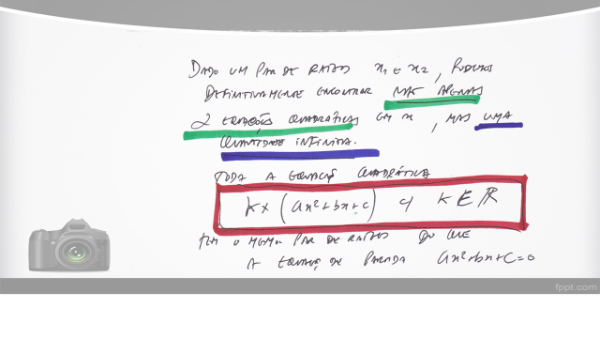 DADO UM PAR DE RAÍZES x1 E x2, PODEMOS
DEFINITIVAMENTE ENCONTRAR NÃO APENAS
2 EQUAÇÕES QUADRÁTICAS EM x, MAS UMA
QUANTIDADE INFINITA.
TODA A EQUAÇÃO QUADRÁTICA
K x (ax²+bx+c) K ∈ ℝ
TEM O MESMO PAR DE RAÍZES DO QUE
A EQUAÇÃO DE PARADA ax²+bx+c=0
fppt.com